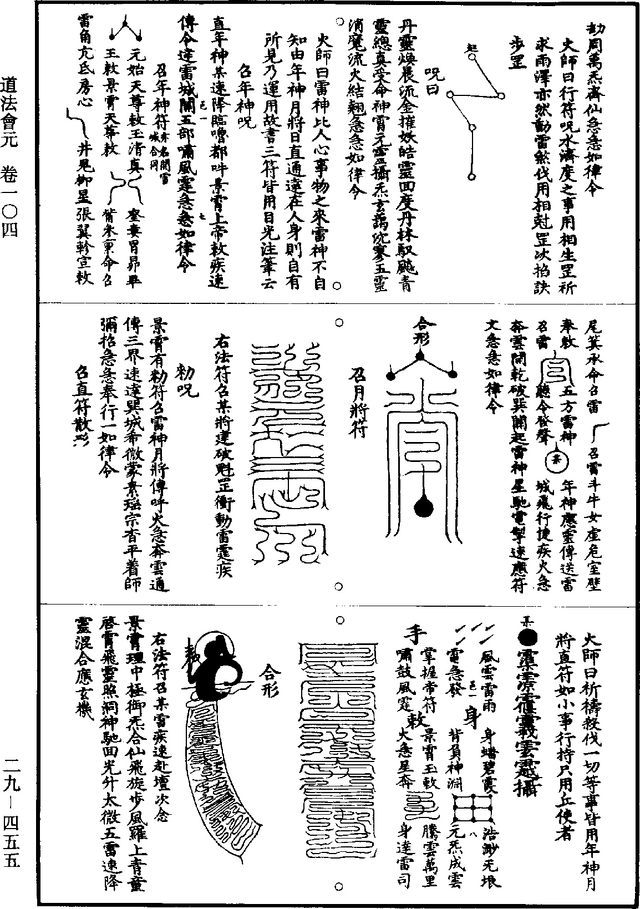 劫周萬炁齊仙急急如律令
火師曰行符呪水濟度之事用相生罡祈
求雨澤亦然動雷煞伐用相尅罡次掐訣
步罡
起
呪曰
丹靈煥晨流金摧妖皓靈四度丹林馭飈青
靈總真受命神霄元靈攝炁玄藹
五靈
消魔流火結翱急急如律令
火師曰雷神比人心事物之來雷神不自
知由年神月將日直通遠在人身則自有
所見乃運用故書三符皆用目光注筆云
召年神呪
直年神某速降臨嚕都吽景霄上帝敕疾速
傳令達雷城開五部嘯風霆急急如律令
召年神符
元始天尊敕玉清真
王敕景霄天尊敕
奎婁胃昴畢
觜參更命召
雷角亢氐房心
井鬼柳星張翼軫宣敕
尾箕承命召雷
召雷斗牛女虛危室壁
奉敕
五方雷神
年神應靈傳送雷
召雷
聽令發聲
城飛行捷疾火急
奔雲開乾破巽關起雷神星馳電掣速應符
文急急如律令
合形
召月將符
右法符召某將建破魁罡衝動雷霆疾
勑呪
景霄有勑符召雷神月將傳呼火急奔雲通
傳三界速達巽城希微蒙素
宗杳平着師
彌掐急急奉行一如律令
召直符散形
火師曰祈禱殺伐一切等事皆用年神月
將直符如小事行持只用丘使者
風雲雷雨
身蟠碧霞
浩渺無垠
電急發
身
背負神洞
元炁成雲
手
掌握帝符
景霄玉敕
騰雲萬里
嘯鼓風霆
敕
火急星奔
身達雷司
合形
右法符召某雷疾速赴壇次念
景霄理中極御炁合仙飛旋步風羅上青童
啓霄飛靈照洞神馳回光外太微五雷速降
靈混合應玄機
道法會元 卷一〇四
二九－四五五